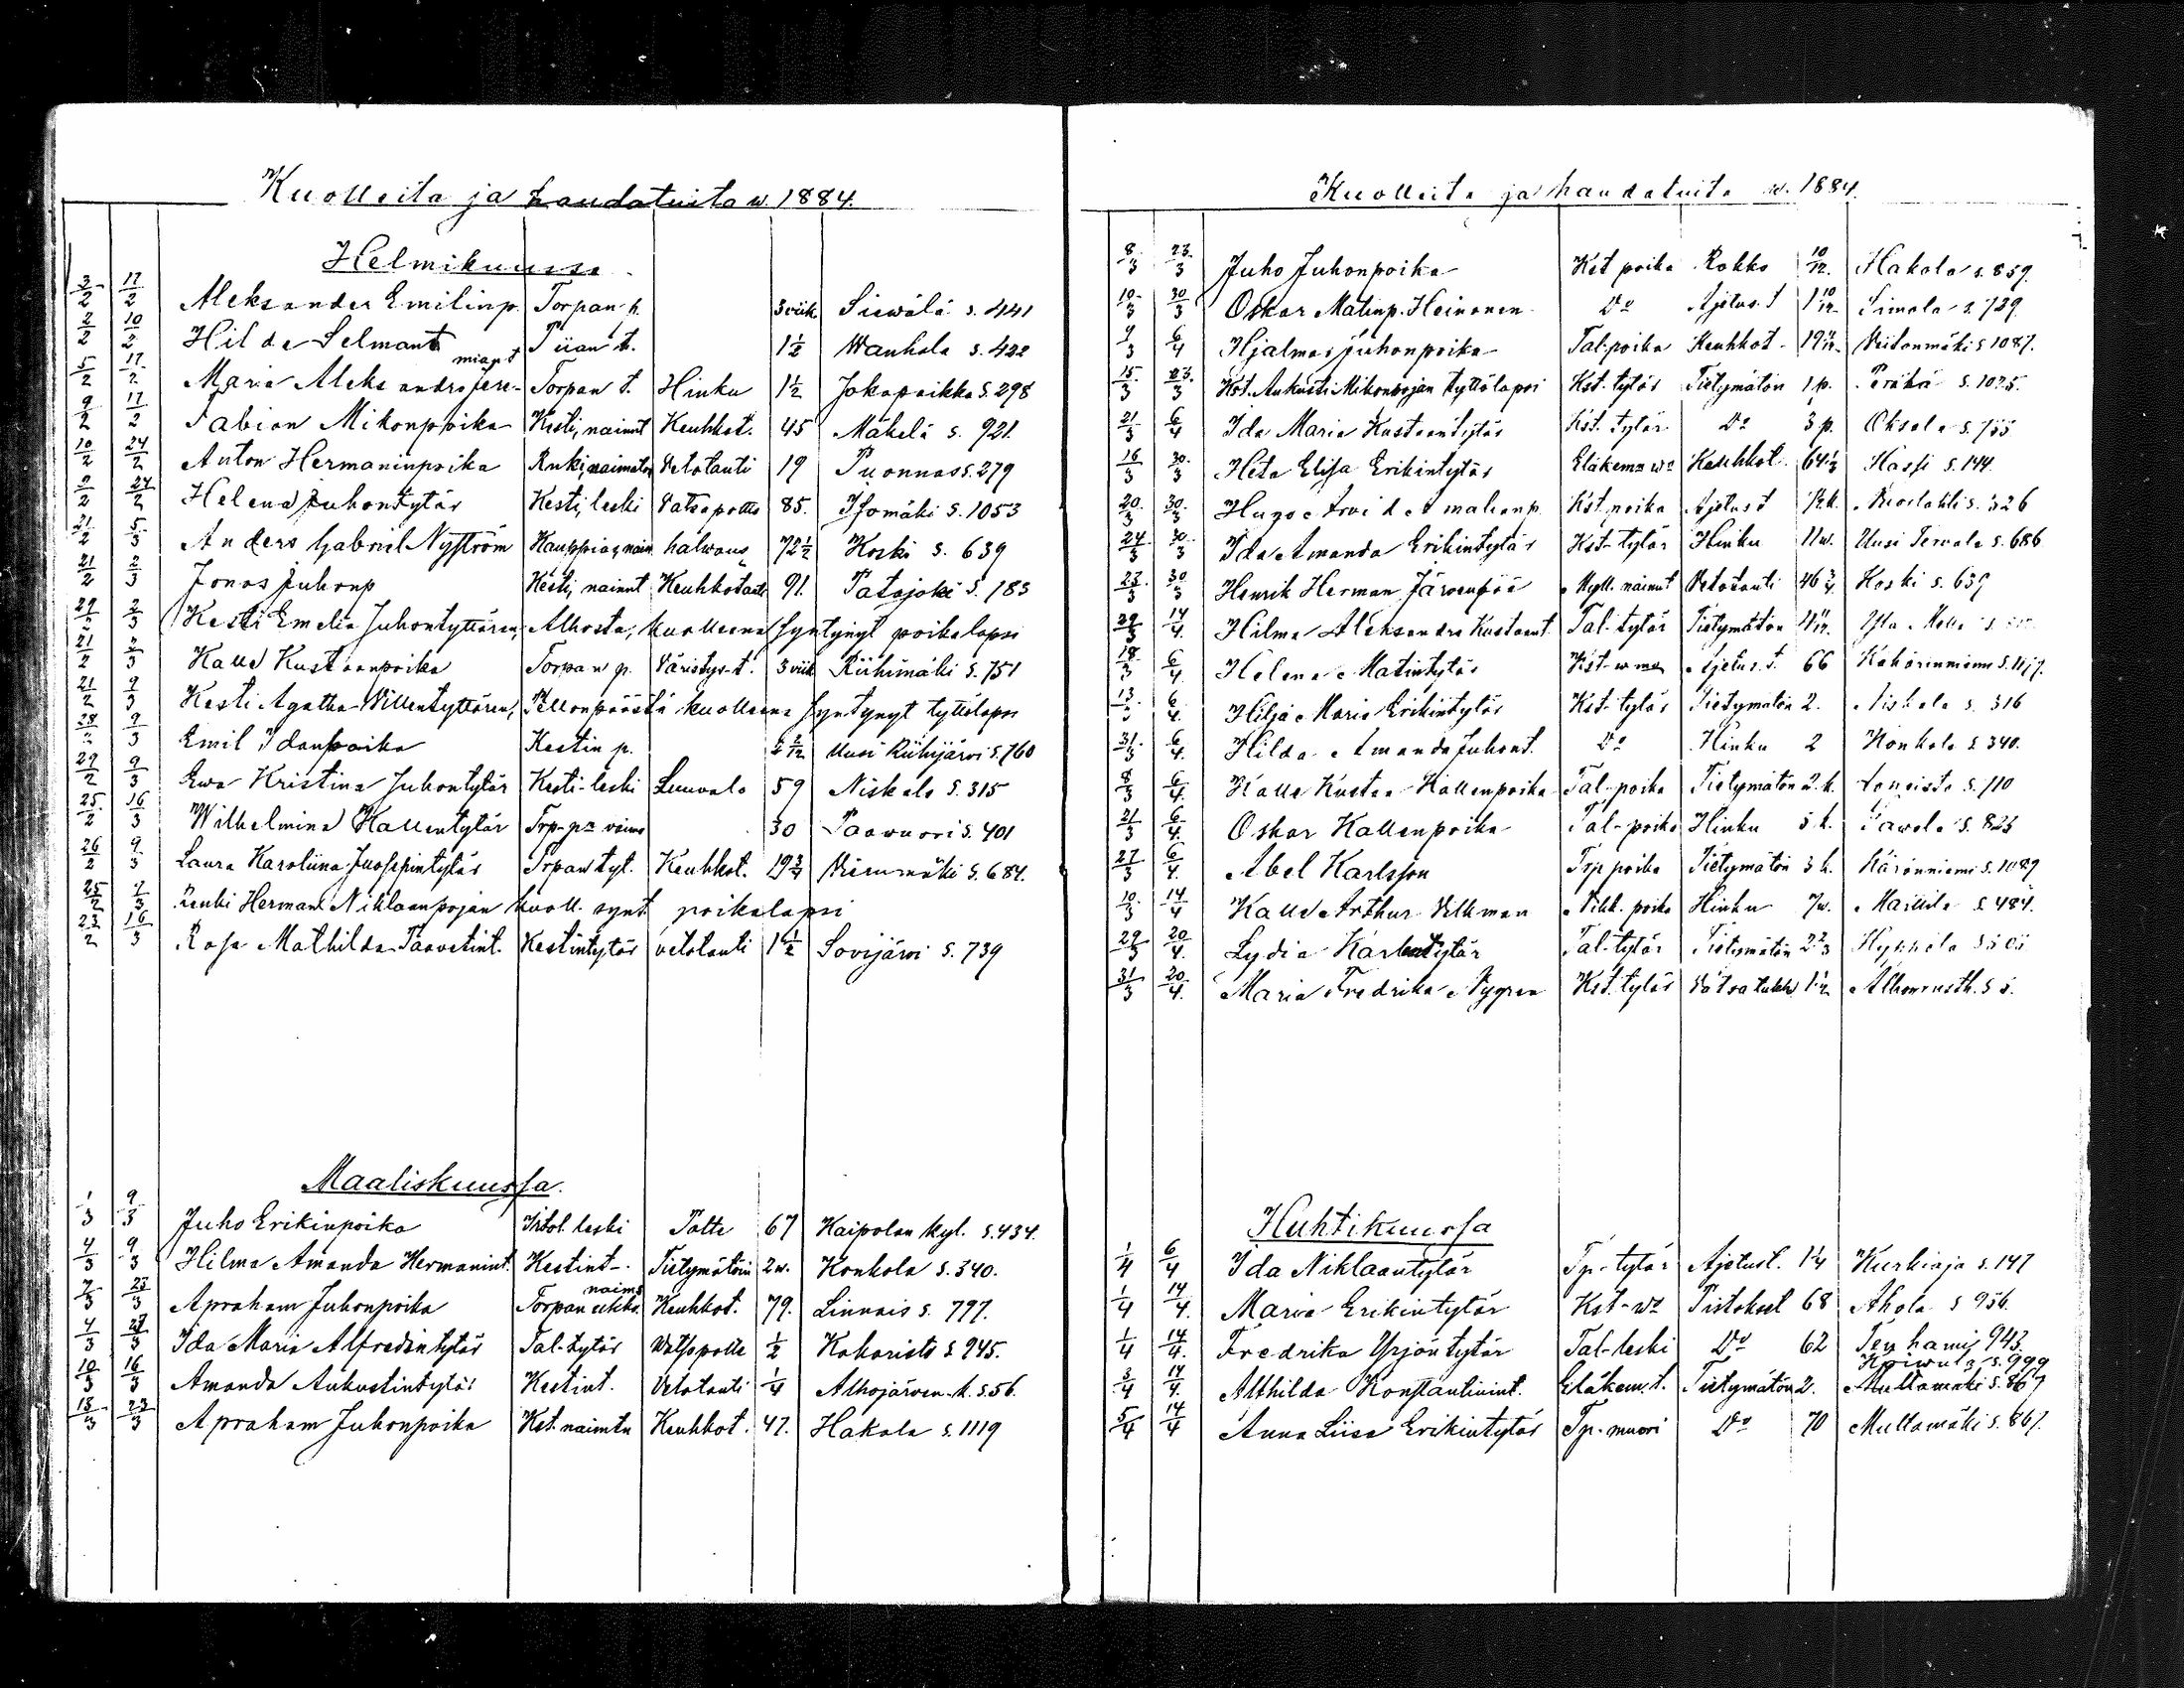 Kuolleita ja haudatuita w. 1884.
Helmikuussa
3/2 17/2 Aleksander Emilinp. Torpan p. 3 viik. Siewälä s. 441
2/2 10/2 Hilda Selmant. Piian t. 1 1/2 Wanhala s. 422
miant.
5/2 17/2 Maria Aleksandra Jere- Torpan t. Hinku 1 1/2 Jokapaikka s. 298
9/2 17/2 Fabian Mikonpoika Kesti, nainut Keuhkot. 45 Mäkelä s. 921.
10/2 24/2 Anton Hermaninpoika Renki, naimaton Vetotauti 19 Puonnas s. 279
9/2 24/2 Helena Juhontytär Kesti, leski Vatsapoltto 85. Isomäki s. 1053
21/2 5/3 Anders Gabriel Nyström Kauppias, nain. halwaus 72 1/2 Koski s. 639
21/2 2/3 Jonas Juhonp Kesti, nainut Keuhkotauti 91. Patajoki s. 183
29/2 2/3 Kesti Emelia Juhontyttären, Alhosta, kuolleena syntynyt poikalapsi
21/2 2/3 Kalle Kustaanpoika Torpan p. Väristys-t. 3 viik Riihimäki s. 751
21/2 9/3 Kesti Agatha Villentyttären, Pellonpäästä kuolleena syntynyt tyttölapsi
28/2 9/3 Emil Idanpoika Kestin p. Uusi Riihijärvi s. 760
29/2 9/3 Ewa Kristina Juhontytär Kesti-leski Luuvalo 59 Niskala s. 315
25/2 16/3 Wilhelmina Kallentytär Trp-pn vaimo 30 Paawuori s. 401
26/2 9/3 Laura Karoliina Juosepintytär Trpan tyt. Keuhkot. 19 3/4 s. 684.
25/2 2/3 Renki Herman Niklaanpojan kuoll. synt. poikalapsi
23/2 16/3 Rosa Mathilda Taavetint. Kestintytär vetotauti 1 1/2 Sovijärvi s. 739
Maaliskuussa.
1/3 9/3 Juho Erikinpoika Itsel. leski Polte 67 Kaipolan kyl. s. 434.
4/3 9/3 Hilma Amanda Hermanint. Kestint-. Tietymätöin 2 w. Konkola s. 340.
naim.
7/3 23/3 Apraham Juhonpoika Torpan ukko. Keuhkot. 79. Linnais s. 797.
4/3 27/3 Ida Maria Alfredintytär Tal-tytär Watsapolte 1/2 Kokoristo s. 945.
10/3 16/3 Amanda Aukustintytär Kestint. Vetotauti 1/4 Alhojärven-k. s. 56.
18/3 23/3 Apraham Juhonpoika Kst. naimtu Keuhkot. 47. Hakala s. 1119
Kuolleita ja haudatuita w. 1884.
8/3 23/3 Juho Juhonpoika Kst poika Rokko 10/12. Hakola s. 859.
10/3 30/3 Oskar Matinp. Heinonen Do Ajetus. t 1 10/12 Simola s. 729.
9/3 6/4 Hjalmar Juhonpoika Tal-poika Keuhkot- Veitonmäki s 1087.
15/3 23/3 Kst. Aukusti Mikonpojan tyttölapsi Kst. tytär Tietymätön 1 p. Peräkä s. 1025.
21/3 6/4 Ida Maria Kustaantytär Kst. tytär Do 3 p. Oksala s. 755
16/3 30/3 Heta Elisa Erikintytär Eläkem:n wo Keuhkot. 64 1/2 Hassi s. 144.
20/3 30/3 Hugo Arvid Amalianp. Kst. poika Ajetus t s. 326
24/3 30/3 Ida Amanda Erikintytär Kst-tytär Hinku 11 w. Uusi Tervala s. 686
23/3 30/3 Henrik Herman Järvenpää Myll. nainut Vetotauti 46 3/4 Koski s. 639
29/3 14/4. Hilma Aleksandra Kustaant. Tal-tytär Tietymätön
18/3 6/4. Helena Matintytär Kst-w mo Ajetus. t. 66 Kahärinniemi s. 1117.
13/3 6/4. Hilja Maria Erikintytär Kst-tytär Tietymätön 2. Niskala s. 316
31/3 6/4. Hilda Amanda Juhont. Do Hinku 2 Konkola s. 340.
8/3 6/4. Kalle Kustaa Kallenpoika Tal-poika Tietymätön 2. k. s. 110
21/3 6/4. Oskar Kallenpoika Tal-poika Hinku 5 k. Pawola s. 825
27/3 6/4. Abel Karlsson Trp poika Tietymätön 3 k. Kärönniemi s. 1089
10/3 14/4 Kalle Arthur Vilkman Nikk. poika Hinku 7 w. Mattila s. 484.
29/3 20/4. Lydia Karlentytär Tal-tytär Tietymätön 2 2/3 Hyppölä
31/3 20/4. Maria Fredrika Nygren Kst. tytär Vatsatukk 1 1/2
Huhtikuussa
1/4 6/4 Ida Niklaantytär Tp-tytär Ajetust. 1 1/4 Kurkioja s. 147
1/4 14/4. Maria Erikintytär Kst-wo Pistokset 68 Ahola s 956.
1/4 14/4. Fredrika Yrjöntytär Tal-leski Do 62 Tenhami 943.
Koiwula s. 999
3/4 14/4. Althilda Konstantinint. Eläkem. t. Tietymätön 2. Multamäki s. 867
5/4 14/4 Anna Liisa Erikintytär Tp-muori Do 70 Multamäki s. 867.